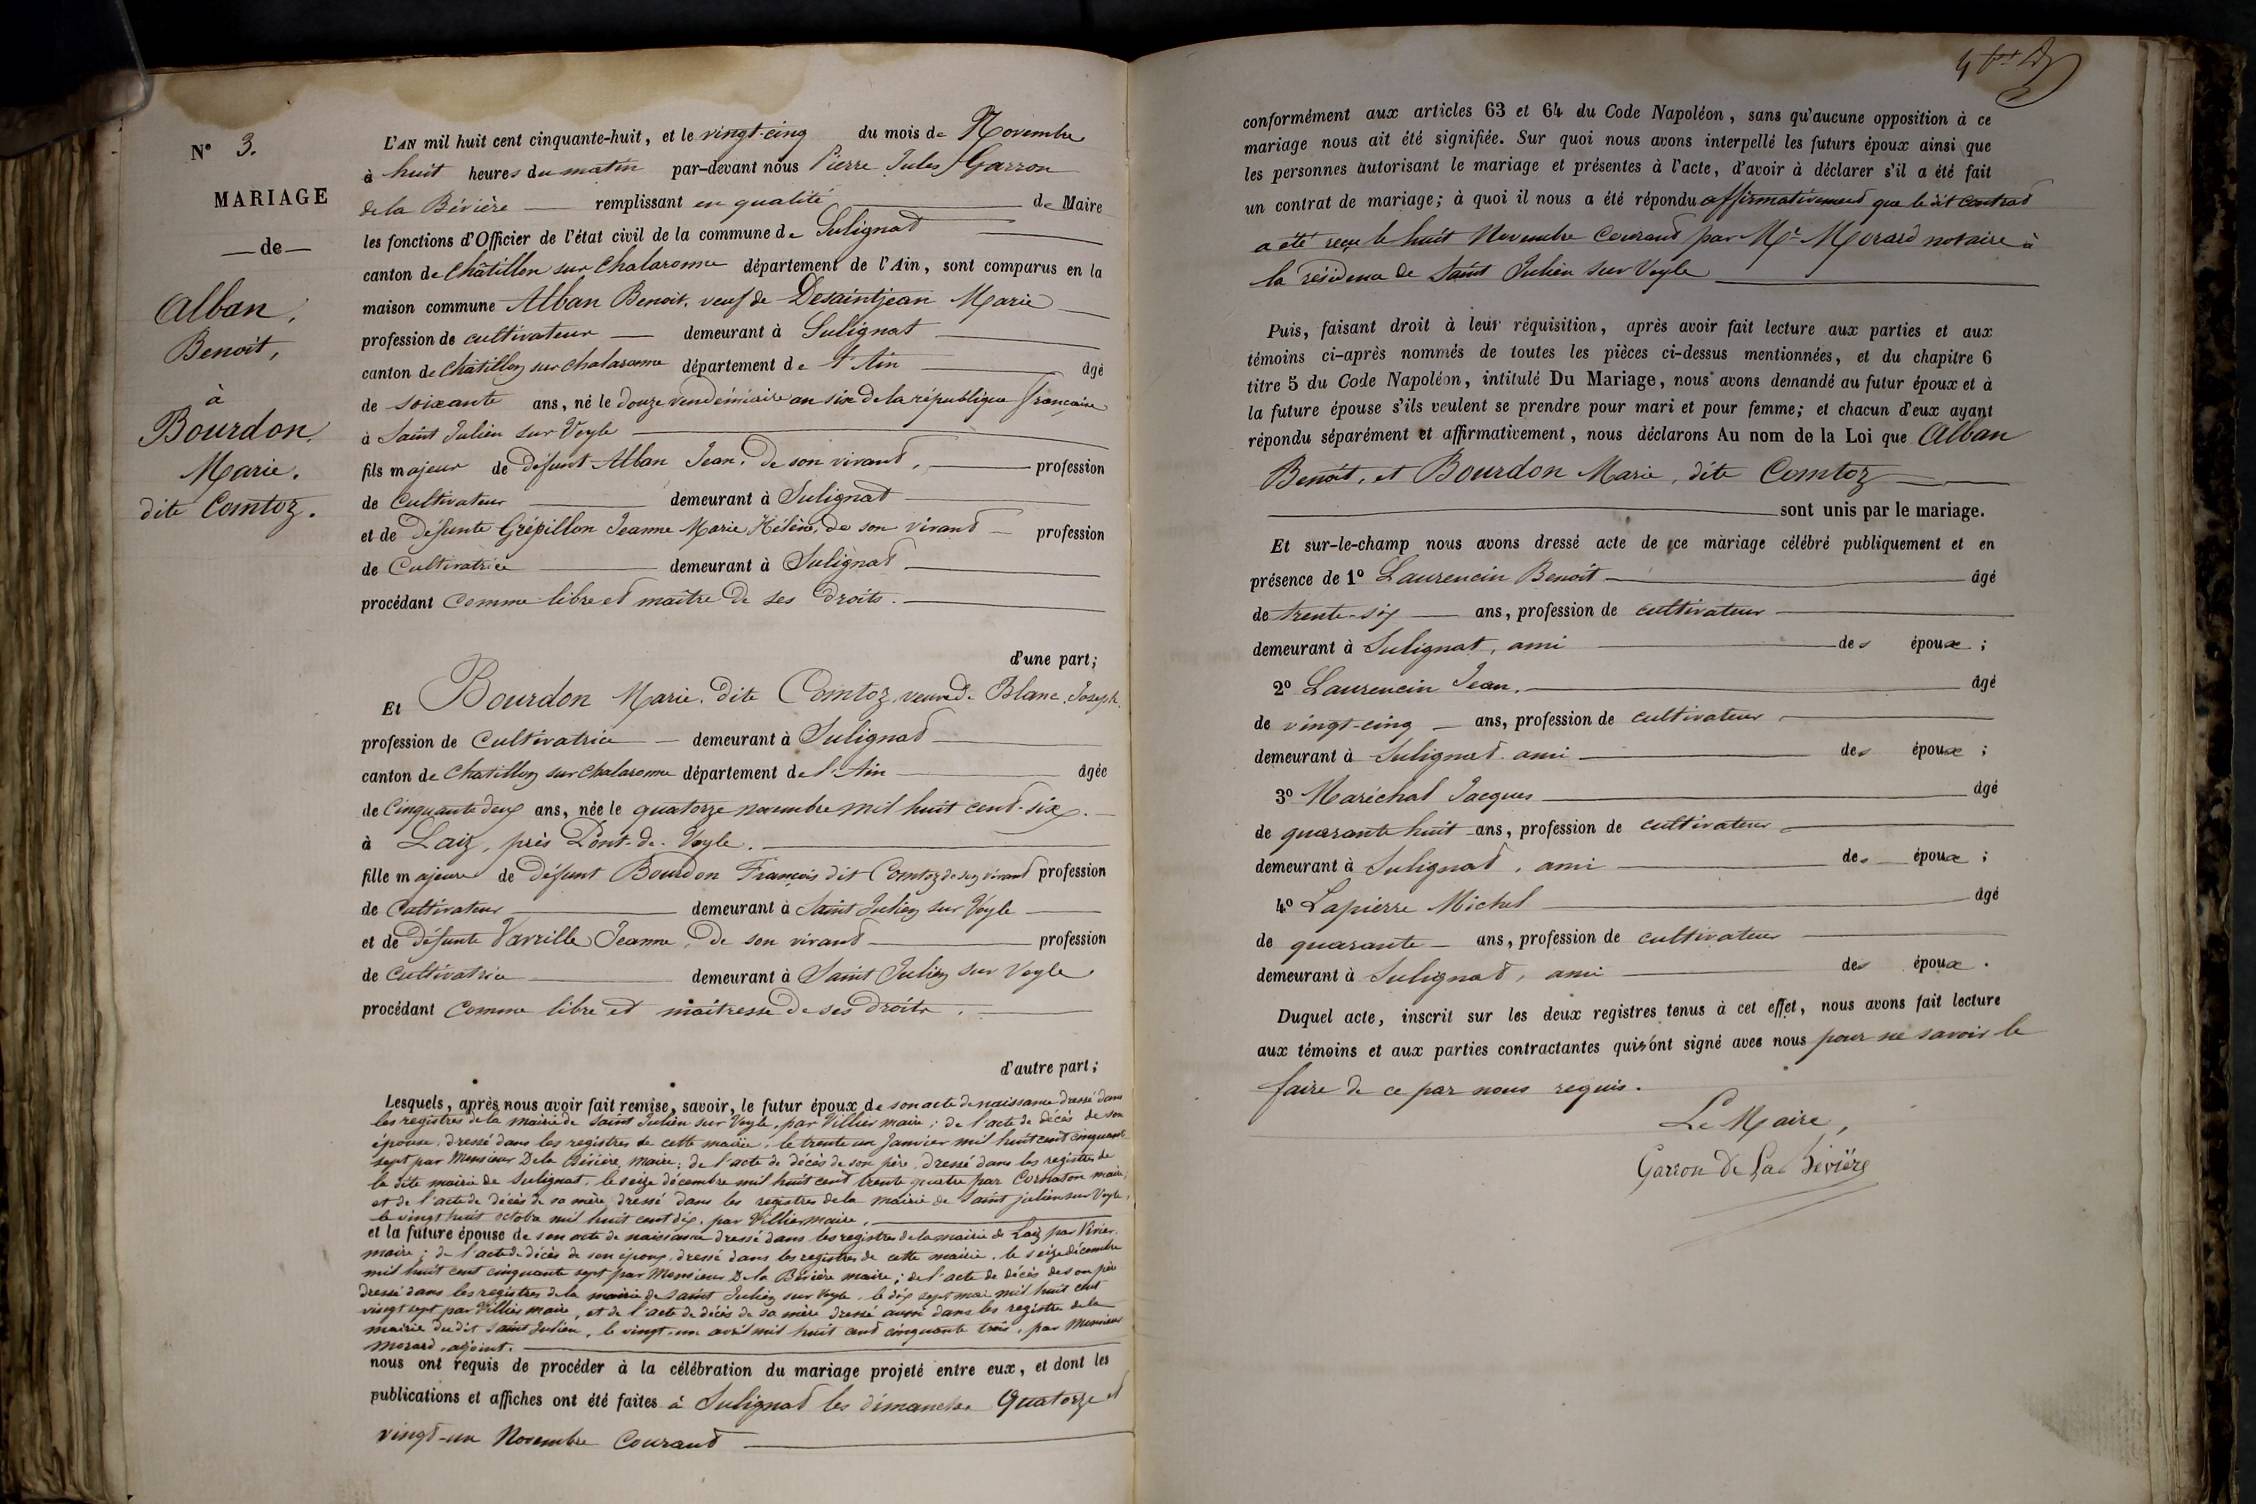 N° 3.
MARIAGE
de
Alban,
Benoit,
à
Bourdon,
Marie.
dite Comtoz.
L'AN mil huit cent cinquante-huit, et le vingt-cinq du mois de Novembre
à huit heures du matin par-devant nous Pierre Jules Garron
de la Bévière remplissant en qualité de Maire
les fonctions d'Officier de l'état civil de la commune de Sulignat
canton de Châtillon sur Chalaronne département de l'Ain, sont comparus en la
maison commune Alban Benoit, veuf de Desaintjean Marie
profession de cultivateur demeurant à Sulignat
canton de Châtillon sur Chalaronne département de l'Ain âgé
de soixante ans, né le douze vendémiaire an six de la république française
à Saint Julien sur Veyle
fils majeur de défunt Alban Jean, de son vivant, profession
de Cultivateur demeurant à Sulignat
et de défunte Grépillon Jeanne Marie Hélène, de son vivant profession
de Cultivatrice demeurant à Sulignat
procédant comme libre et maître de ses droits.
d'une part;
Et Bourdon Marie, dite Comtoz, veuve de Blanc Joseph.
profession de Cultivatrice demeurant à Sulignat
canton de Chatillon sur Chalaronne département de l'Ain âgée
de Cinquante deux ans, née le quatorze novembre mil huit cent six.
à Laiz, près Pont-de-Veyle.
fille majeure de défunt Bourdon François dit Comtoz de son vivant profession
de Cultivateur demeurant à Saint Julien sur Veyle
et de défunte Varville Jeanne, de son vivant profession
de Cultivatrice demeurant à Saint Julien sur Veyle
procédant comme libre et maîtresse de ses droits.
d'autre part;
Lesquels, après nous avoir fait remise, savoir, le futur époux de son acte de naissance dressé dans
les registres de la mairie de Saint Julien sur Veyle, par Villier maire; de l'acte de décès de son
épouse, dressé dans les registres de cette mairie, le trente un Janvier mil huit cent cinquante
sept par Monsieur De la Bévière, maire; de l'acte de décès de son père, dressé dans les registres de
la dite mairie de Sulignat, le seize décembre mil huit cent trente quatre par Cornaton maire,
et de l'acte de décès de sa mère dressé dans les registres de la mairie de Saint julien sur Veyle,
le vingt huit octobre mil huit cent dix, par Villier maire,
et la future épouse de son acte de naissance dressé dans les registres de la mairie de Laiz par Vivier
maire; de l'acte de décès de son époux, dressé dans les registres de cette mairie, le seize décembre
mil huit cent cinquante sept par Monsieur De la Bévière maire; de l'acte de décès de son père
dressé dans les registres de la mairie de Saint Julien sur Veyle, le dix sept mai mil huit cent
vingt sept par Villier maire, et de l'acte de décès de sa mère dressé aussi dans les registres de la
mairie du dit Saint Julien, le vingt-un avril mil huit cent cinquante trois, par Monsieur
Morard, adjoint.
nous ont requis de procéder à la célébration du mariage projeté entre eux, et dont les
publications et affiches ont été faites à Sulignat les dimanches Quatorze et
vingt-un Novembre Courant
conformément aux articles 63 et 64 du Code Napoléon, sans qu'aucune opposition à ce
mariage nous ait été signifiée. Sur quoi nous avons interpellé les futurs époux ainsi que
les personnes autorisant le mariage et présentes à l'acte, d'avoir à déclarer s'il a été fait
un contrat de mariage; à quoi il nous a été répondu affirmativement que le dit contrat
a été reçu le huit Novembre Courant par Me Morard notaire à
la résidence de Saint Julien sur Veyle
Puis, faisant droit à leur réquisition, après avoir fait lecture aux parties et aux
témoins ci-après nommés de toutes les pièces ci-dessus mentionnées, et du chapitre 6
titre 5 du Code Napoléon, intitulé Du Mariage, nous avons demandé au futur époux et à
la future épouse s'ils veulent se prendre pour mari et pour femme; et chacun d'eux ayant
répondu séparément et affirmativement, nous déclarons Au nom de la Loi que Alban
Benoit, et Bourdon Marie, dite Comtoz
sont unis par le mariage.
Et sur-le-champ nous avons dressé acte de ce mariage célébré publiquement et en
présence de 1° Laurencin Benoit âgé
de trente-six ans, profession de cultivateur
demeurant à Sulignat, ami des époux;
2° Laurencin Jean, âgé
de vingt-cinq ans, profession de cultivateur
demeurant à Sulignat ami des époux;
3° Maréchal Jacques âgé
de quarante huit ans, profession de cultivateur
demeurant à Sulignat, ami des époux;
4° Lapierre Michel âgé
de quarante ans, profession de cultivateur
demeurant à Sulignat, ami des époux.
Duquel acte, inscrit sur les deux registres tenus à cet effet, nous avons fait lecture
aux témoins et aux parties contractantes qui ont signé avec nous pour ne savoir le
faire de ce par nous requis.
Le Maire,
Garron De La Bévière